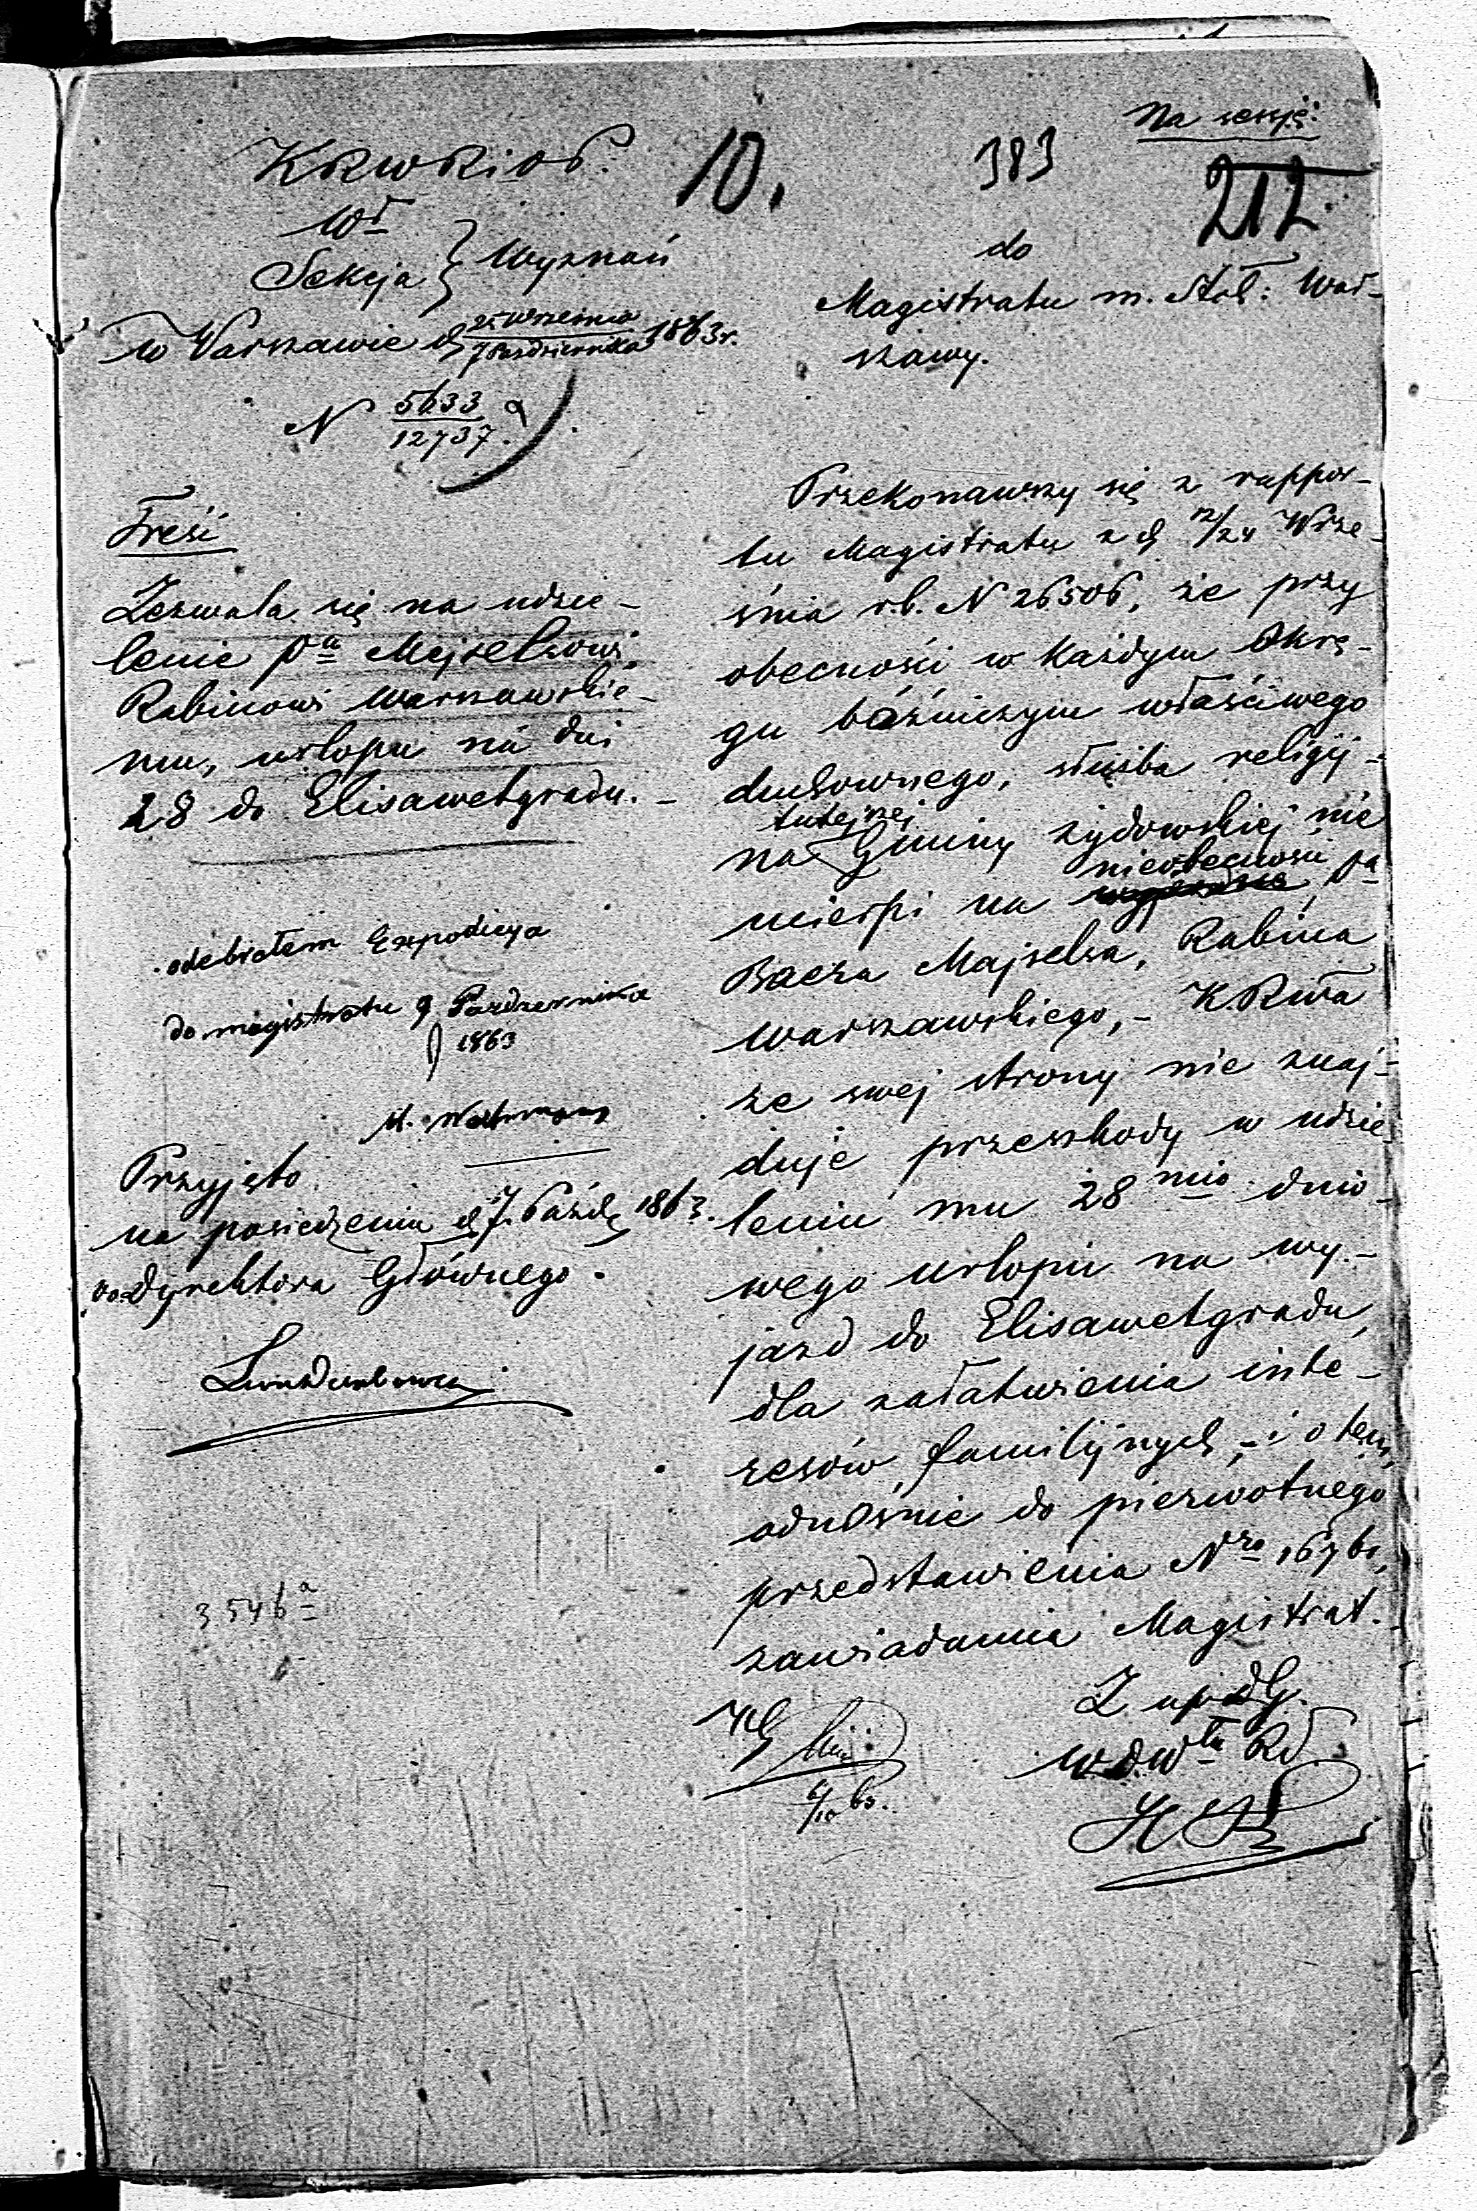 Na sesyę.
KRWRiOP.
10.
383
212.
Wł
Sekcja } Wyznań
do
Magistratu m. Stoł: War-
szawy.
w Warszawie d 25 Września / 7 Października 1863 r.
N 5633 / 12737.
Treść
Zezwala się na udzie-
lenie Pu Mejselsowi,
Rabinowi Warszawskie-
mu, urlopu na dni
28 do Elisawetgradu. -
odebrałem Expedicya
do magistratu 9 Pazdzernika
1863
Przyjęto
na posiedzeniu d 7. Paźdz 1863.
Dyrektora Głównego.
3546
Przekonawszy się z rappor-
tu Magistratu z d 12/24 Wrze-
śnia r.b. N 26506, że przy
obecności w każdym Okrę-
gu bóźniczym właściwego
duchownego, służba religij-
na tutejszej Gminy żydowskiej nie
ucierpi na nieobecności Pa
Baera Majselsa, Rabina
Warszawskiego, - K.R.
ze swej strony nie znaj-
duje przeszkody w udzie-
leniu mu 28 mio dnio-
wego urlopu na wy-
jazd do Elisawetgradu,
dla załatwienia inte-
resów familijnych, - i o tem,
odnośnie do pierwotnego
przedstawienia Nro 16761,
zawiadamia Magistrat.
Z up. dG.